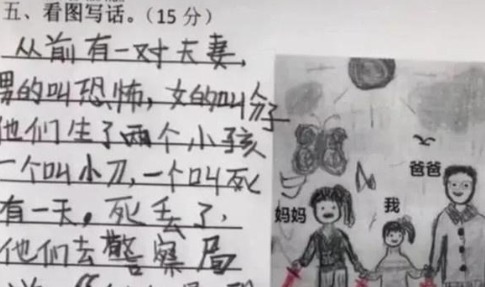 五、看图写话。(15分)
从前有一对夫妻,
男的叫恐怖,女的叫分子
他们生了两个小孩
一个叫小刀,一个叫死
有一天,死丢了,
他们去警察局
爸爸
我
妈妈